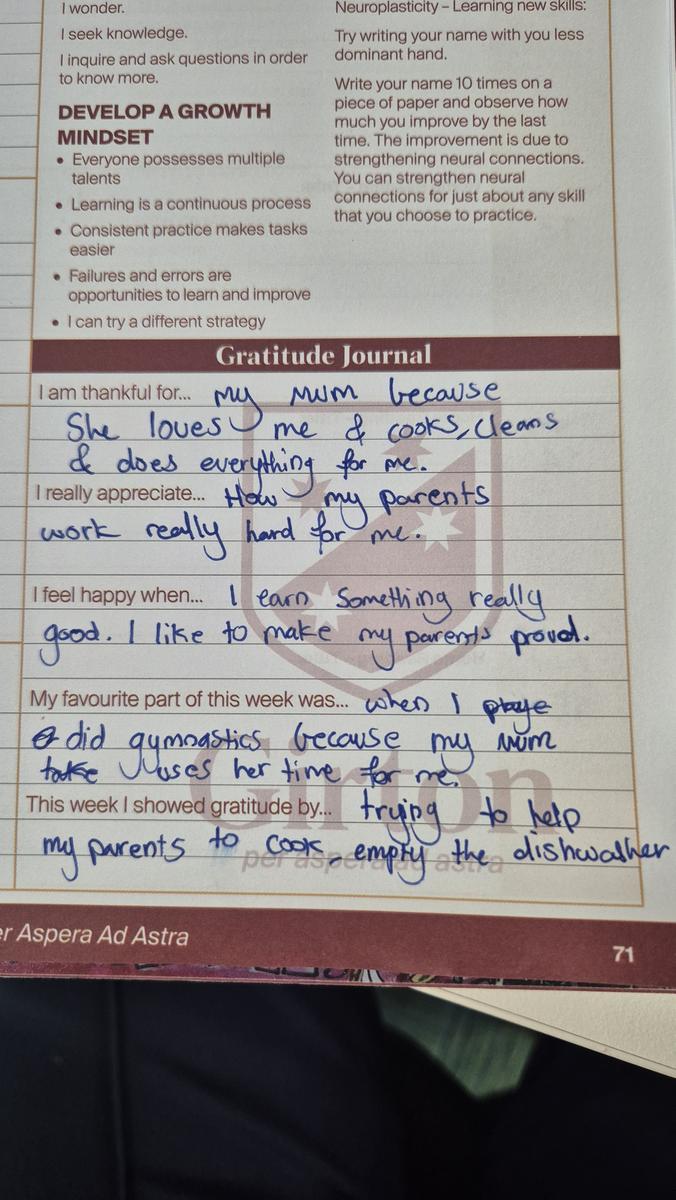 I wonder.
I seek knowledge.
I inquire and ask questions in order
to know more.
DEVELOP A GROWTH
MINDSET
• Everyone possesses multiple
talents
• Learning is a continuous process
• Consistent practice makes tasks
easier
• Failures and errors are
opportunities to learn and improve
• I can try a different strategy
Neuroplasticity – Learning new skills:
Try writing your name with you less
dominant hand.
Write your name 10 times on a
piece of paper and observe how
much you improve by the last
time. The improvement is due to
strengthening neural connections.
You can strengthen neural
connections for just about any skill
that you choose to practice.
Gratitude Journal
I am thankful for... my mum because
She loves me & cooks, cleans
& does everything for me.
I really appreciate... How my parents
work really hard for me.
I feel happy when... I earn something really
good. I like to make my parents proud.
My favourite part of this week was... when I playe
did gymnastics because my mum
take uses her time for me.
This week I showed gratitude by... trying to help
my parents to cook, empty the dishwasher
Girton
per aspera ad astra
er Aspera Ad Astra
71